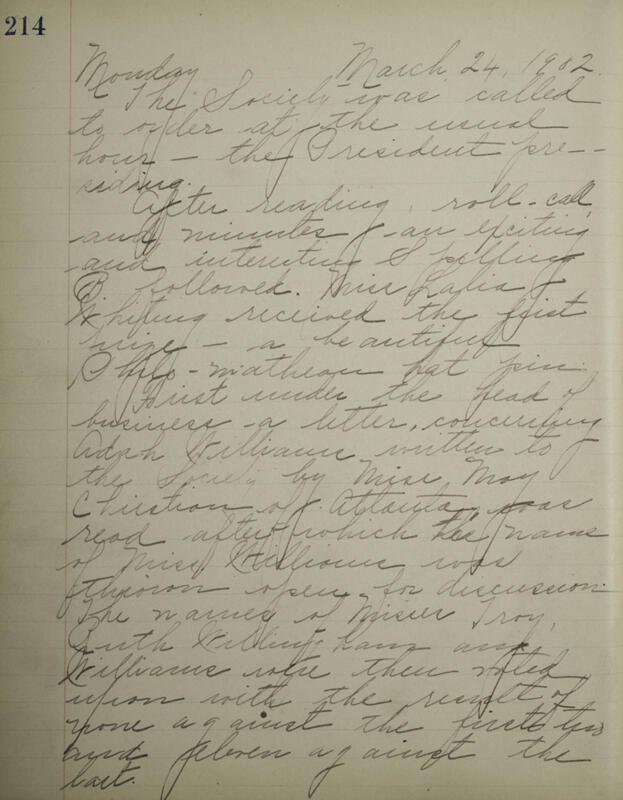 214
Monday March, 24, 1902.
The Society was called
to order at the usual
hour - the President pre-
siding.
After reading, roll-call,
and minutes, an exciting
and interesting Spelling
B followed. Miss Lalia
Whiting received the first
prize - a beautiful
Philo-mathean hat pin.
First under the head of
business a letter, concerning
Adah Williams, written to
the Society by Miss May
Christian of Atlanta, was
read after which the name
of Miss Williams was
thrown open for discussion.
The names of Misses Troy,
Ruth Willingham and
Williams were then voted
upon with the result of
none against the first two
and eleven against the
last.